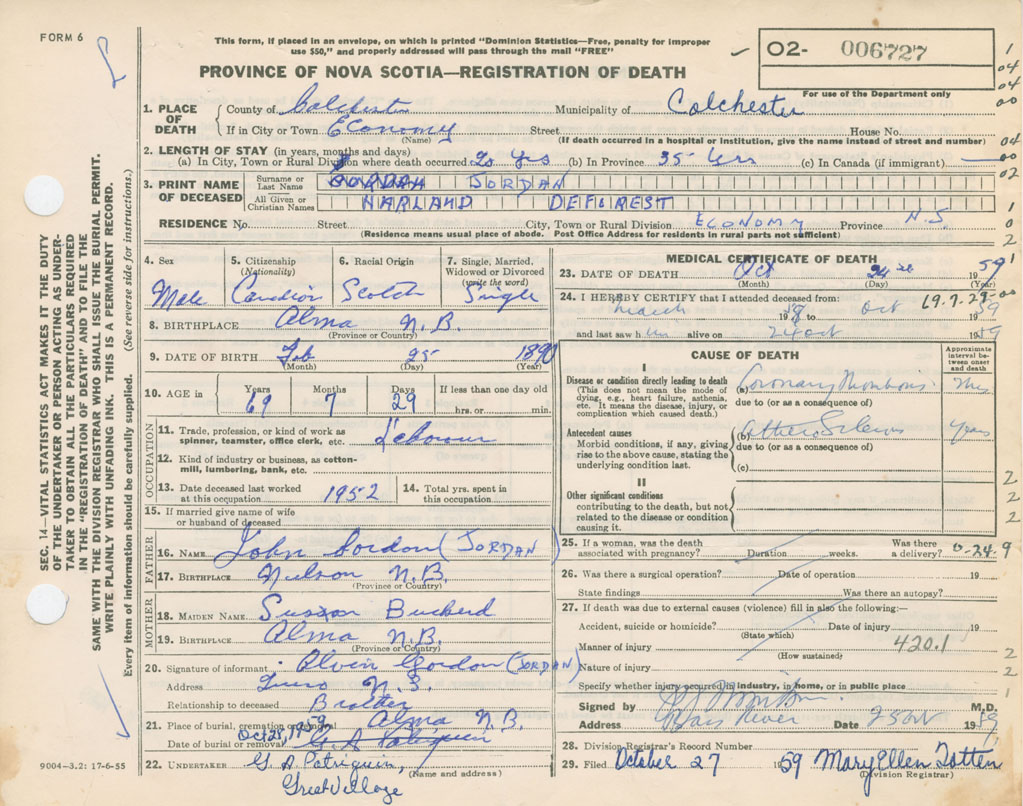 FORM 6
This form, if placed in an envelope, on which is printed "Dominion Statistics—Free, penalty for improper
use $50," and properly addressed will pass through the mail "FREE"
PROVINCE OF NOVA SCOTIA—REGISTRATION OF DEATH
O2- 006727
For use of the Department only
1. PLACE OF DEATH
County of Colchester Municipality of Colchester
If in City or Town Economy Street House No.
(Name) (If death occurred in a hospital or institution, give the name instead of street and number)
2. LENGTH OF STAY (in years, months and days)
(a) In City, Town or Rural Division where death occurred 20 Yrs (b) In Province 35 Yrs (c) In Canada (if immigrant) —
3. PRINT NAME OF DECEASED
Surname or Last Name JORDAN
All Given or Christian Names HARLAND DEFOREST
RESIDENCE No. Street City, Town or Rural Division ECONOMY Province N.S.
(Residence means usual place of abode. Post Office Address for residents in rural parts not sufficient)
4. Sex 5. Citizenship (Nationality) 6. Racial Origin 7. Single, Married, Widowed or Divorced (write the word)
Male Scotch Single
8. BIRTHPLACE Alma N.B.
(Province or Country)
9. DATE OF BIRTH Feb 25 1890
(Month) (Day) (Year)
10. AGE in Years Months Days If less than one day old
69 7 29 hrs. or min.
OCCUPATION
11. Trade, profession, or kind of work as
spinner, teamster, office clerk, etc. Labourer
12. Kind of industry or business, as cotton-
mill, lumbering, bank, etc.
13. Date deceased last worked
at this occupation 1952
14. Total yrs. spent in
this occupation
15. If married give name of wife
or husband of deceased
FATHER
16. NAME John Gordon (JORDAN)
17. BIRTHPLACE Nelson N.B.
(Province or Country)
MOTHER
18. MAIDEN NAME Susan
19. BIRTHPLACE Alma N.B.
(Province or Country)
20. Signature of informant Alvin Gordon (JORDAN)
Address Truro N.S.
Relationship to deceased Brother
21. Place of burial, cremation or removal Alma N.B.
Date of burial or removal Oct 28, 1959
22. UNDERTAKER G. A. Patriquin,
(Name and address)
Great Village
9004—3.2: 17-6-55
MEDICAL CERTIFICATE OF DEATH
23. DATE OF DEATH Oct 24 1959
(Month) (Day) (Year)
24. I HEREBY CERTIFY that I attended deceased from:
March 1958 to Oct 1959
69.7.29
and last saw him alive on 24 Oct 1959
CAUSE OF DEATH
Approximate interval between onset and death
I
Disease or condition directly leading to death
(This does not mean the mode of
dying, e.g., heart failure, asthenia,
etc. It means the disease, injury, or
complication which caused death.)
(a) Coronary Thrombosis
due to (or as a consequence of)
Antecedent causes
Morbid conditions, if any, giving
rise to the above cause, stating the
underlying condition last.
(b) years
due to (or as a consequence of)
(c)
II
Other significant conditions
contributing to the death, but not
related to the disease or condition
causing it.
25. If a woman, was the death
associated with pregnancy? Duration weeks. Was there a delivery? 0-24-9
26. Was there a surgical operation? Date of operation
State findings Was there an autopsy?
27. If death was due to external causes (violence) fill in also the following:—
Accident, suicide or homicide? Date of injury 19
(State which)
Manner of injury 420.1
(How sustained)
Nature of injury
Specify whether injury occurred in industry, in home, or in public place
Signed by M.D.
Address Bass River Date 25 Oct 1959
28. Division Registrar's Record Number
29. Filed October 27 1959 Mary Ellen Totten
(Division Registrar)
SEC. 14—VITAL STATISTICS ACT MAKES IT THE DUTY
OF THE UNDERTAKER OR PERSON ACTING AS UNDER-
TAKER TO OBTAIN ALL THE PARTICULARS REQUIRED
IN THE "REGISTRATION OF DEATH" AND TO FILE THE
SAME WITH THE DIVISION REGISTRAR WHO SHALL ISSUE THE BURIAL PERMIT.
WRITE PLAINLY WITH UNFADING INK. THIS IS A PERMANENT RECORD.
Every item of information should be carefully supplied. (See reverse side for instructions.)
1
04
04
00
04
00
02
1
0
2
1
00
2
2
2
2
2
1